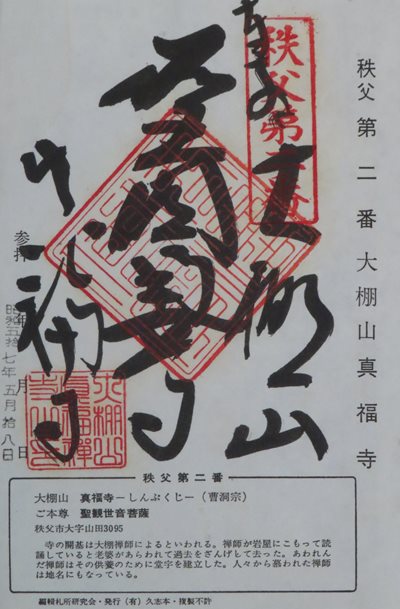 秩父第二番大棚山真福寺
奉拝
秩父第二番
大棚山
聖観世音
真福寺
参拝 年 月 日
昭和五拾七年五月拾八日
秩父第二番
大棚山 真福寺―しんぷくじ―(曹洞宗)
ご本尊 聖観世音菩薩
秩父市大字山田3095
寺の開基は大棚禅師によるといわれる。禅師が岩屋にこもって読
誦していると老婆があらわれて過去をざんげして去った。あわれん
だ禅師はその供養のために堂宇を建立した。人々から慕われた禅師
は地名にもなっている。
編輯札所研究会・発行(有)久志本・複製不許